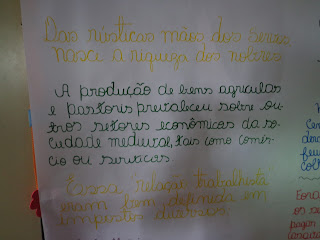 Das rústicas mãos dos servos
nasce a riqueza dos nobres
A produção de bens agrícolas
e pastoris prevaleceu sobre ou-
tros setores econômicos da so-
ciedade medieval, tais como comér-
cio ou serviços
Essa relação trabalhista
eram bem definida em
impostos diversos: